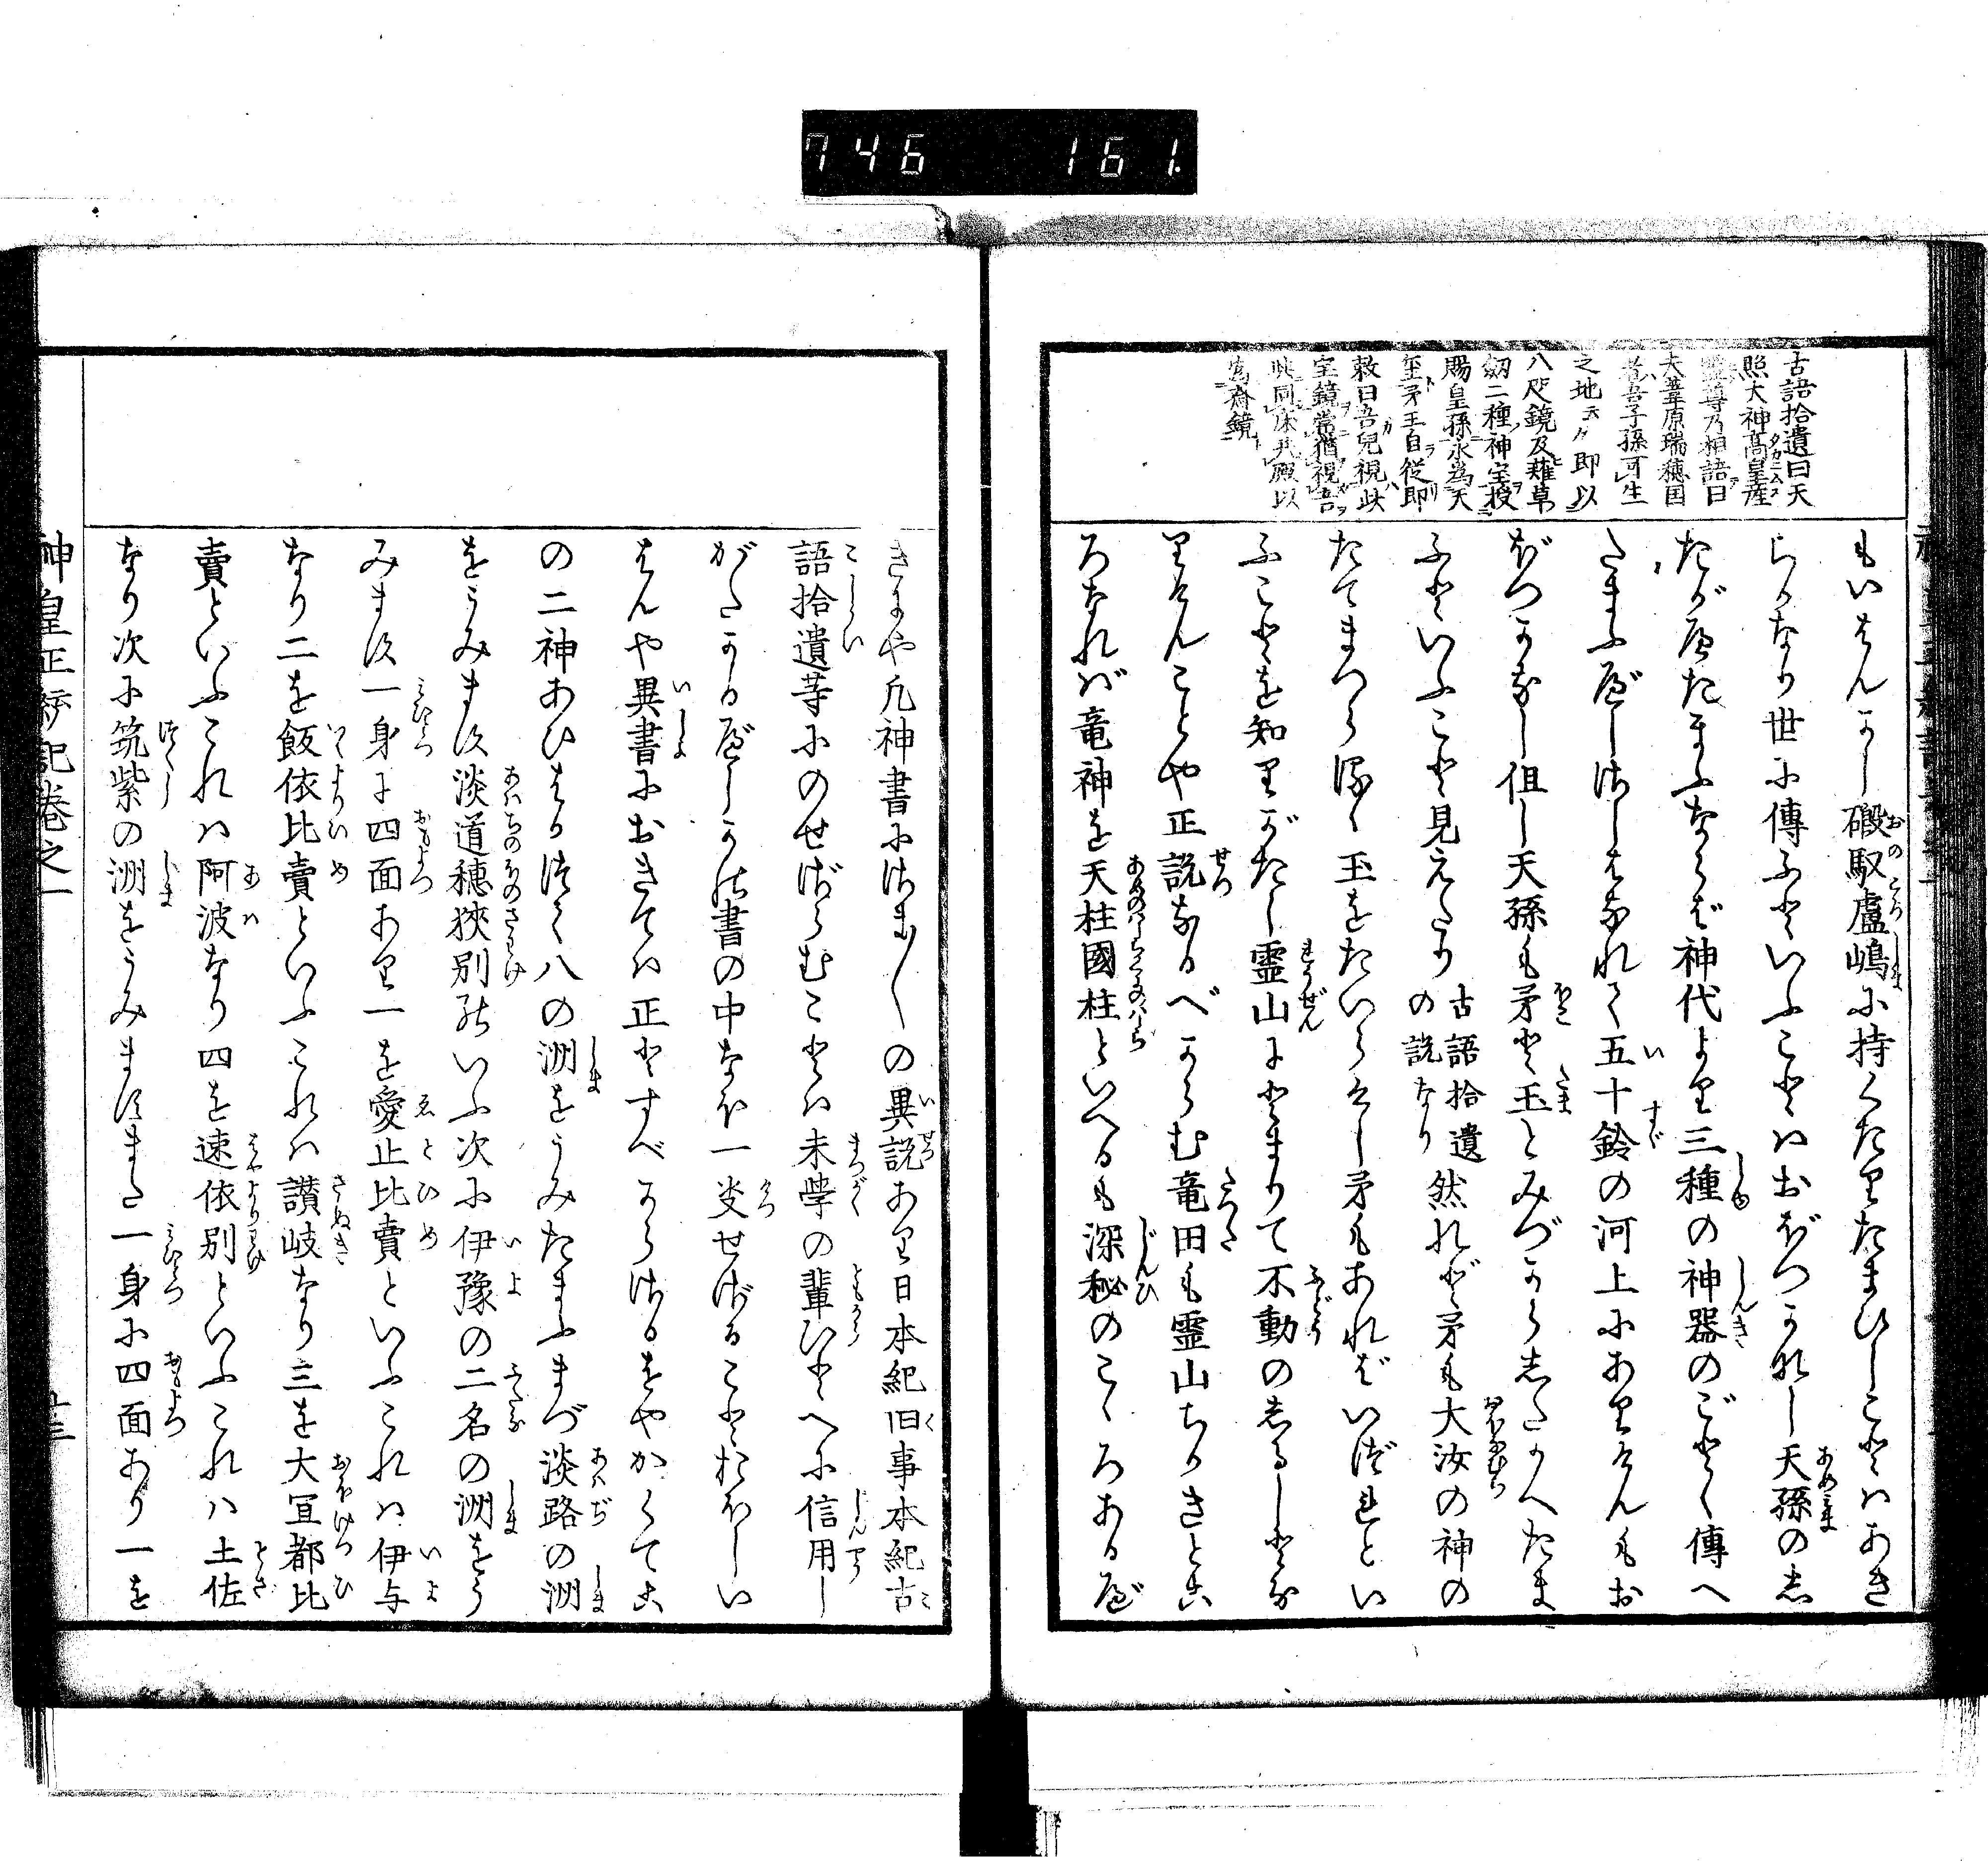 746 161.
古語拾遺曰天
照大神高皇産
霊尊乃相語曰
夫葦原瑞穂国
者吾子孫可生
之地 云々 即以
八咫鏡及薙草
剱二種神宝授
賜皇孫永為天
璽矛玉自従即
敕曰吾児視此
宝鏡當猶視吾
與同床共殿以
為齋鏡
もいはんかし磤馭盧嶋に持くだりたまひしことはあき
らかなり世に傳ふといふことはおぼつかなし天孫の志
たがへたまふならば神代より三種の神器のごとく傳へ
たまふべしさしはなれて五十鈴の河上にありけんもお
ぼつかなし但し天孫も矛と玉とみづからしたがへたま
ふといふこと見えたり 古語拾遺の説なり 然れども矛も大汝の神の
たてまつらるゝ玉をたいらけし矛もあればいづれとい
ふことを知りがたし霊山にとどまりて不動のしるしとな
りけんことや正説なるべからむ竜田も霊山ちかきとこ
ろなれば竜神を天柱國柱といへるも深秘のこゝろあるべ
きにや凡神書にさま〲の異説あり日本紀旧事本紀古
語拾遺等にのせざらむことは末學の輩ひとへに信用し
がたかるべしかの書の中なほ一決せざることおほしい
はんや異書におきては正とすべからざるをやかくてこ
の二神あひはかりて八の洲をうみたまふまづ淡路の洲
をうみます淡道穂狹別といふ次に伊豫の二名の洲をう
みます一身に四面あり一を愛止比賣といふこれは伊与
なり二を飯依比賣といふこれは讃岐なり三を大冝都比
賣といふこれは阿波なり四を速依別といふこれは土佐
なり次に筑紫の洲をうみますまた一身に四面あり一を
神皇正統記巻之一
十三